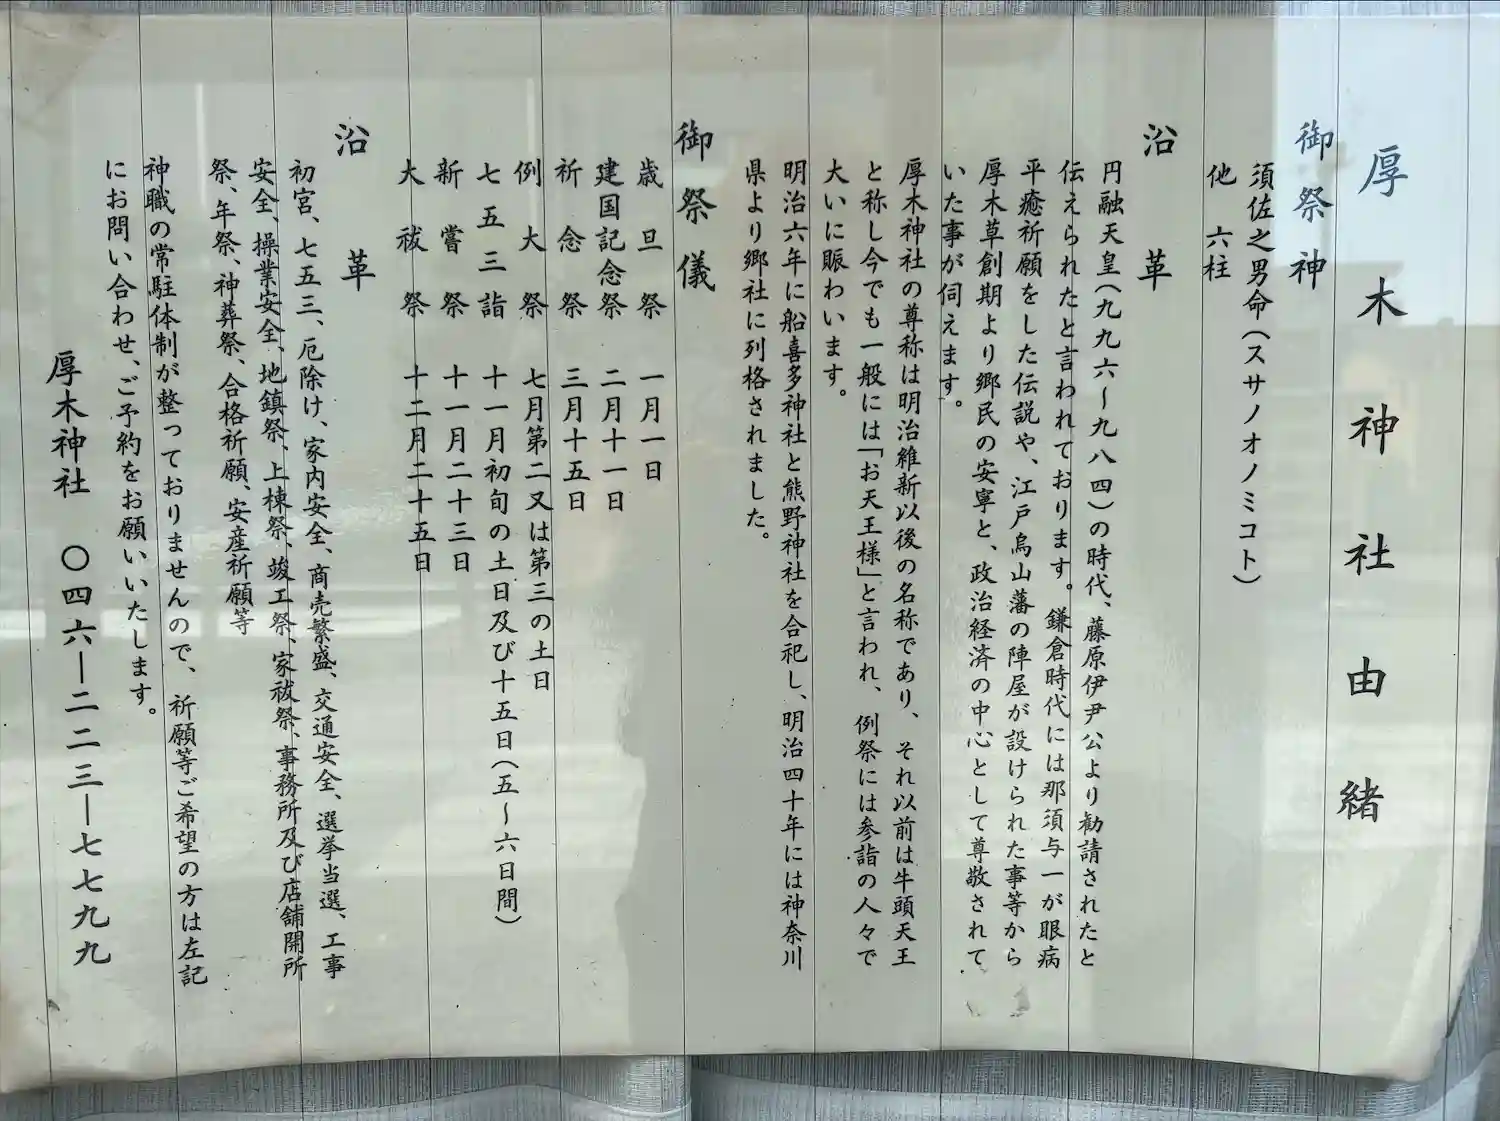 厚木神社由緒
御祭神
須佐之男命(スサノオノミコト)
他 六柱
沿革
円融天皇(九九六〜九八四)の時代、藤原伊尹公より勧請されたと
伝えられたと言われております。鎌倉時代には那須与一が眼病
平癒祈願をした伝説や、江戸烏山藩の陣屋が設けられた事等から
厚木草創期より郷民の安寧と、政治経済の中心として尊敬されて
いた事が伺えます。
厚木神社の尊称は明治維新以後の名称であり、それ以前は牛頭天王
と称し今でも一般には「お天王様」と言われ、例祭には参詣の人々で
大いに賑わいます。
明治六年に船喜多神社と熊野神社を合祀し、明治四十年には神奈川
県より郷社に列格されました。
御祭儀
歳旦祭 一月一日
建国記念祭 二月十一日
祈念祭 三月十五日
例大祭 七月第二又は第三の土日
七五三詣 十一月初旬の土日及び十五日(五〜六日間)
新嘗祭 十一月二十三日
大祓祭 十二月二十五日
沿革
初宮、七五三、厄除け、家内安全、商売繁盛、交通安全、選挙当選、工事
安全、操業安全、地鎮祭、上棟祭、竣工祭、家祓祭、事務所及び店舗開所
祭、年祭、神葬祭、合格祈願、安産祈願等
神職の常駐体制が整っておりませんので、祈願等ご希望の方は左記
にお問い合わせ、ご予約をお願いいたします。
厚木神社 〇四六―二二三―七七九九